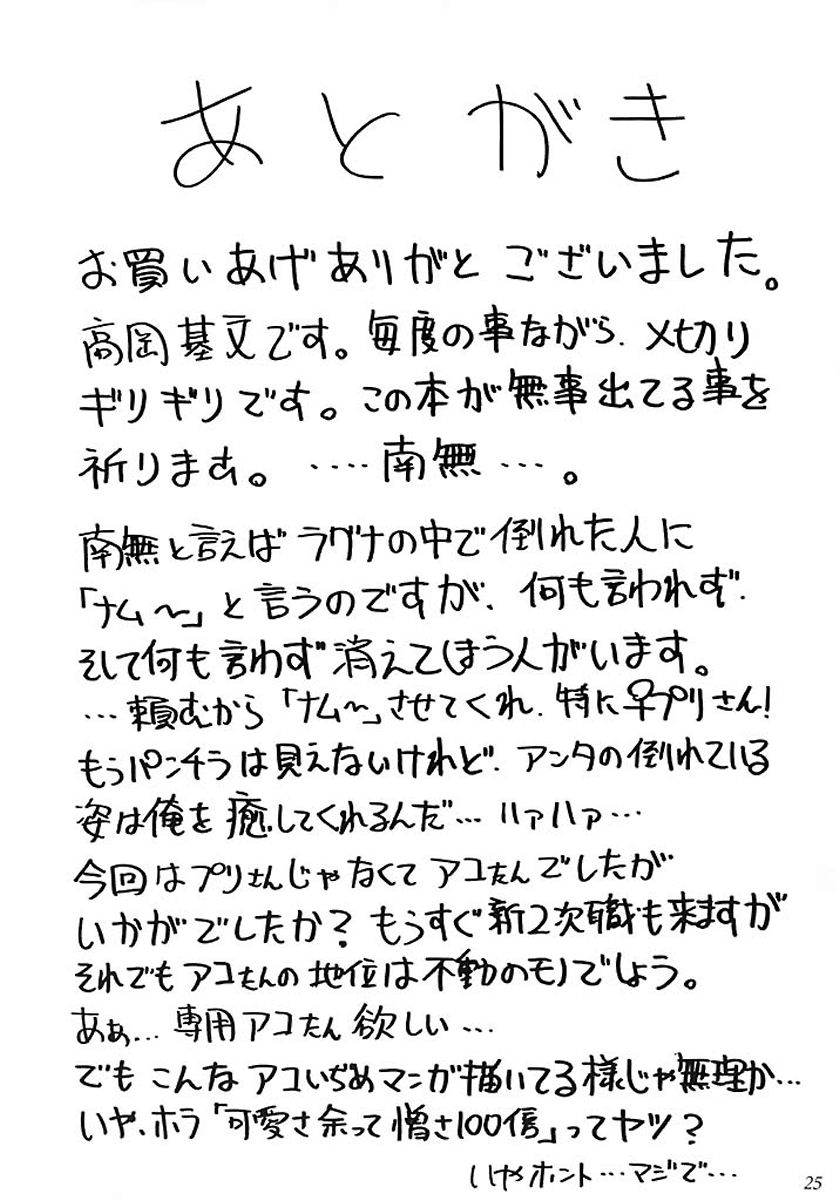 あとがき
お買いあげありがとございました。
高岡基文です。毎度の事ながら、〆切り
ギリギリです。この本が無事出てる事を
祈ります. ‥‥南無…。
南無と言えばラグナの中で倒れた人に
「ナム〜」と言うのですが、何も言われず、
そして何も言わず消えてしまう人がいます。
…頼むから「ナム〜」させてくれ、特に♀プリさん!
もうパンチラは見えないけれど、アンタの倒れている
姿は俺を癒してくれるんだ…ハァハァ…
今回はプリさんじゃなくてアコたんでしたが
いかがでしたか?もうすぐ新2次職も来ますが
それでもアコたんの地位は不動のモノでしょう。
あぁ…専用アコたん欲しい…
でもこんなアコいぢめマンガ描いてる様じゃ無理か…
いや、ホラ「可愛さ余って憎さ100倍」ってヤツ?
いやホント…マジで…
25